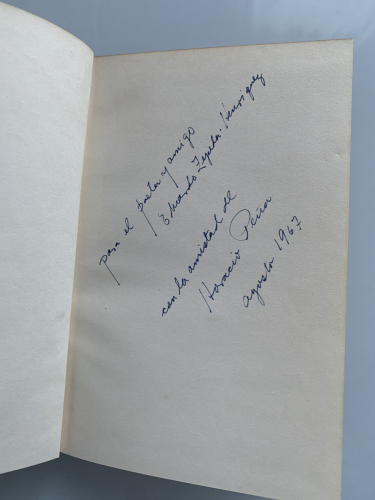 para el poeta y amigo
Eduardo Zepeda-Henríquez
con la amistad de
Horacio Peña
agosto 1967